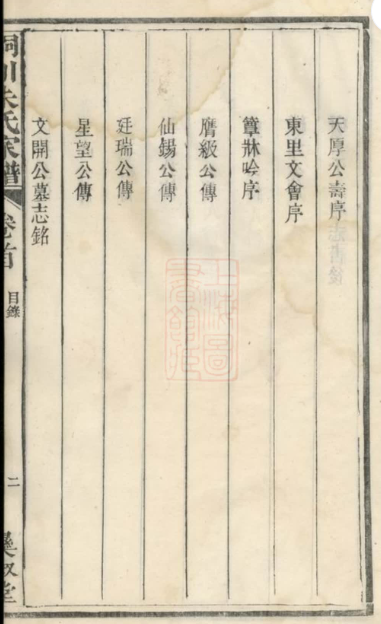 天厚公壽序
東里文會序
簟牀吟序
膺級公傳
仙錫公傳
廷瑞公傳
星望公傳
文開公墓志銘
桐川朱氏家譜 卷首 目錄 二